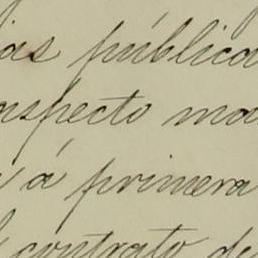 as pública
aspecto ma
a á primera
contrato de